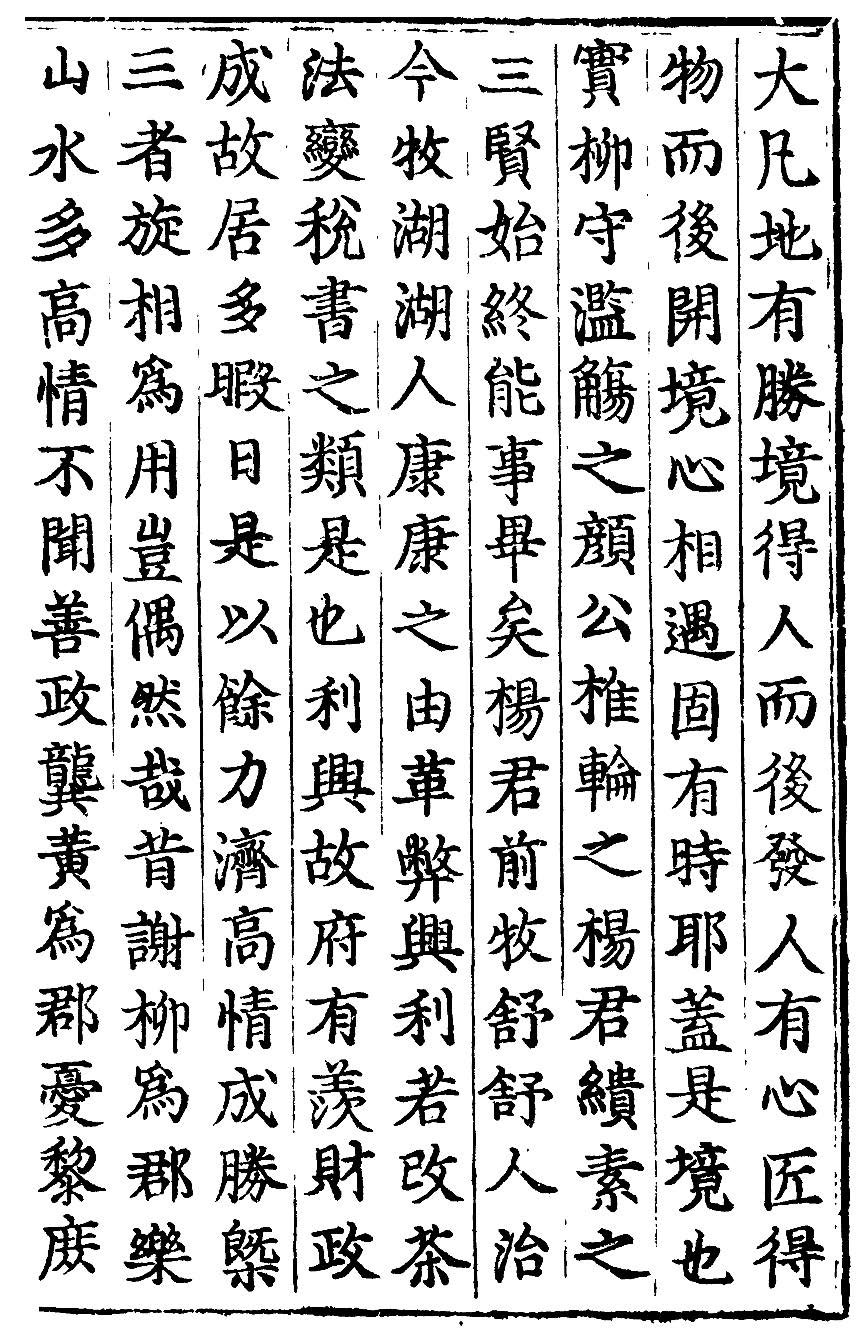 大凡地有勝境得人而後發人有心匠得
物而後開境心相遇固有時耶蓋是境也
實柳守濫觴之顔公椎輪之楊君繢素之
三賢始終能事畢矣楊君前牧舒舒人治
今牧湖湖人康康之由革弊興利若改茶
法變稅書之類是也利興故府有羨財政
成故居多暇日是以餘力濟高情成勝槩
三者旋相爲用豈偶然哉昔謝柳爲郡樂
山水多高情不聞善政龔黃爲郡憂黎庶